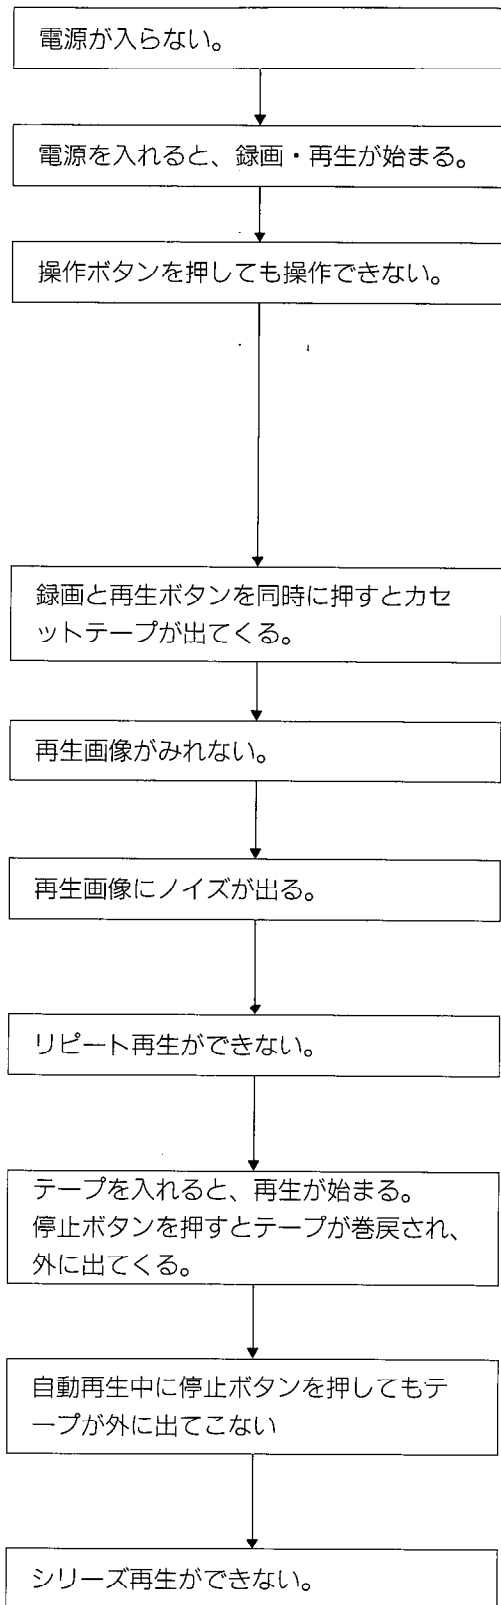 電源が入らない。
電源を入れると、録画・再生が始まる。
操作ボタンを押しても操作できない。
録画と再生ボタンを同時に押すとカセ
ットテープが出てくる。
再生画像がみれない。
再生画像にノイズが出る。
リピート再生ができない。
テープを入れると、再生が始まる。
停止ボタンを押すとテープが巻戻され、
外に出てくる。
自動再生中に停止ボタンを押してもテ
ープが外に出てこない
シリーズ再生ができない。